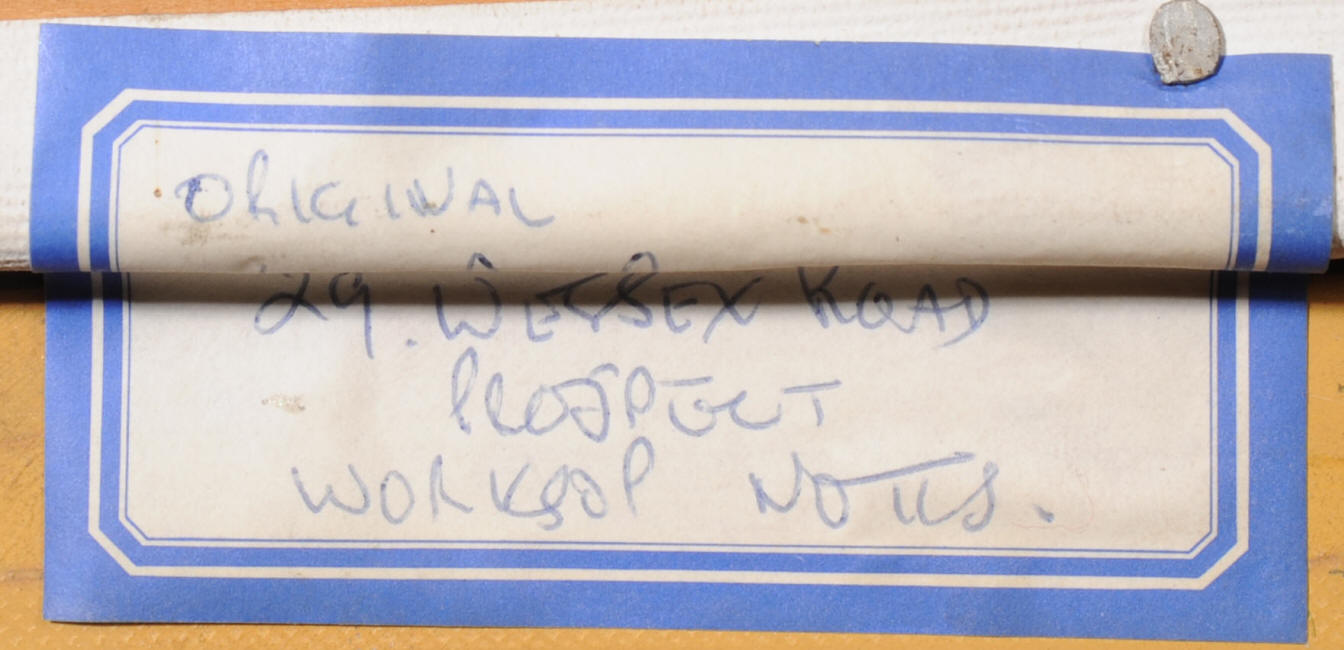 ORIGINAL
29. WESSEX ROAD
PROSPECT
WORKSOP NOTTS.